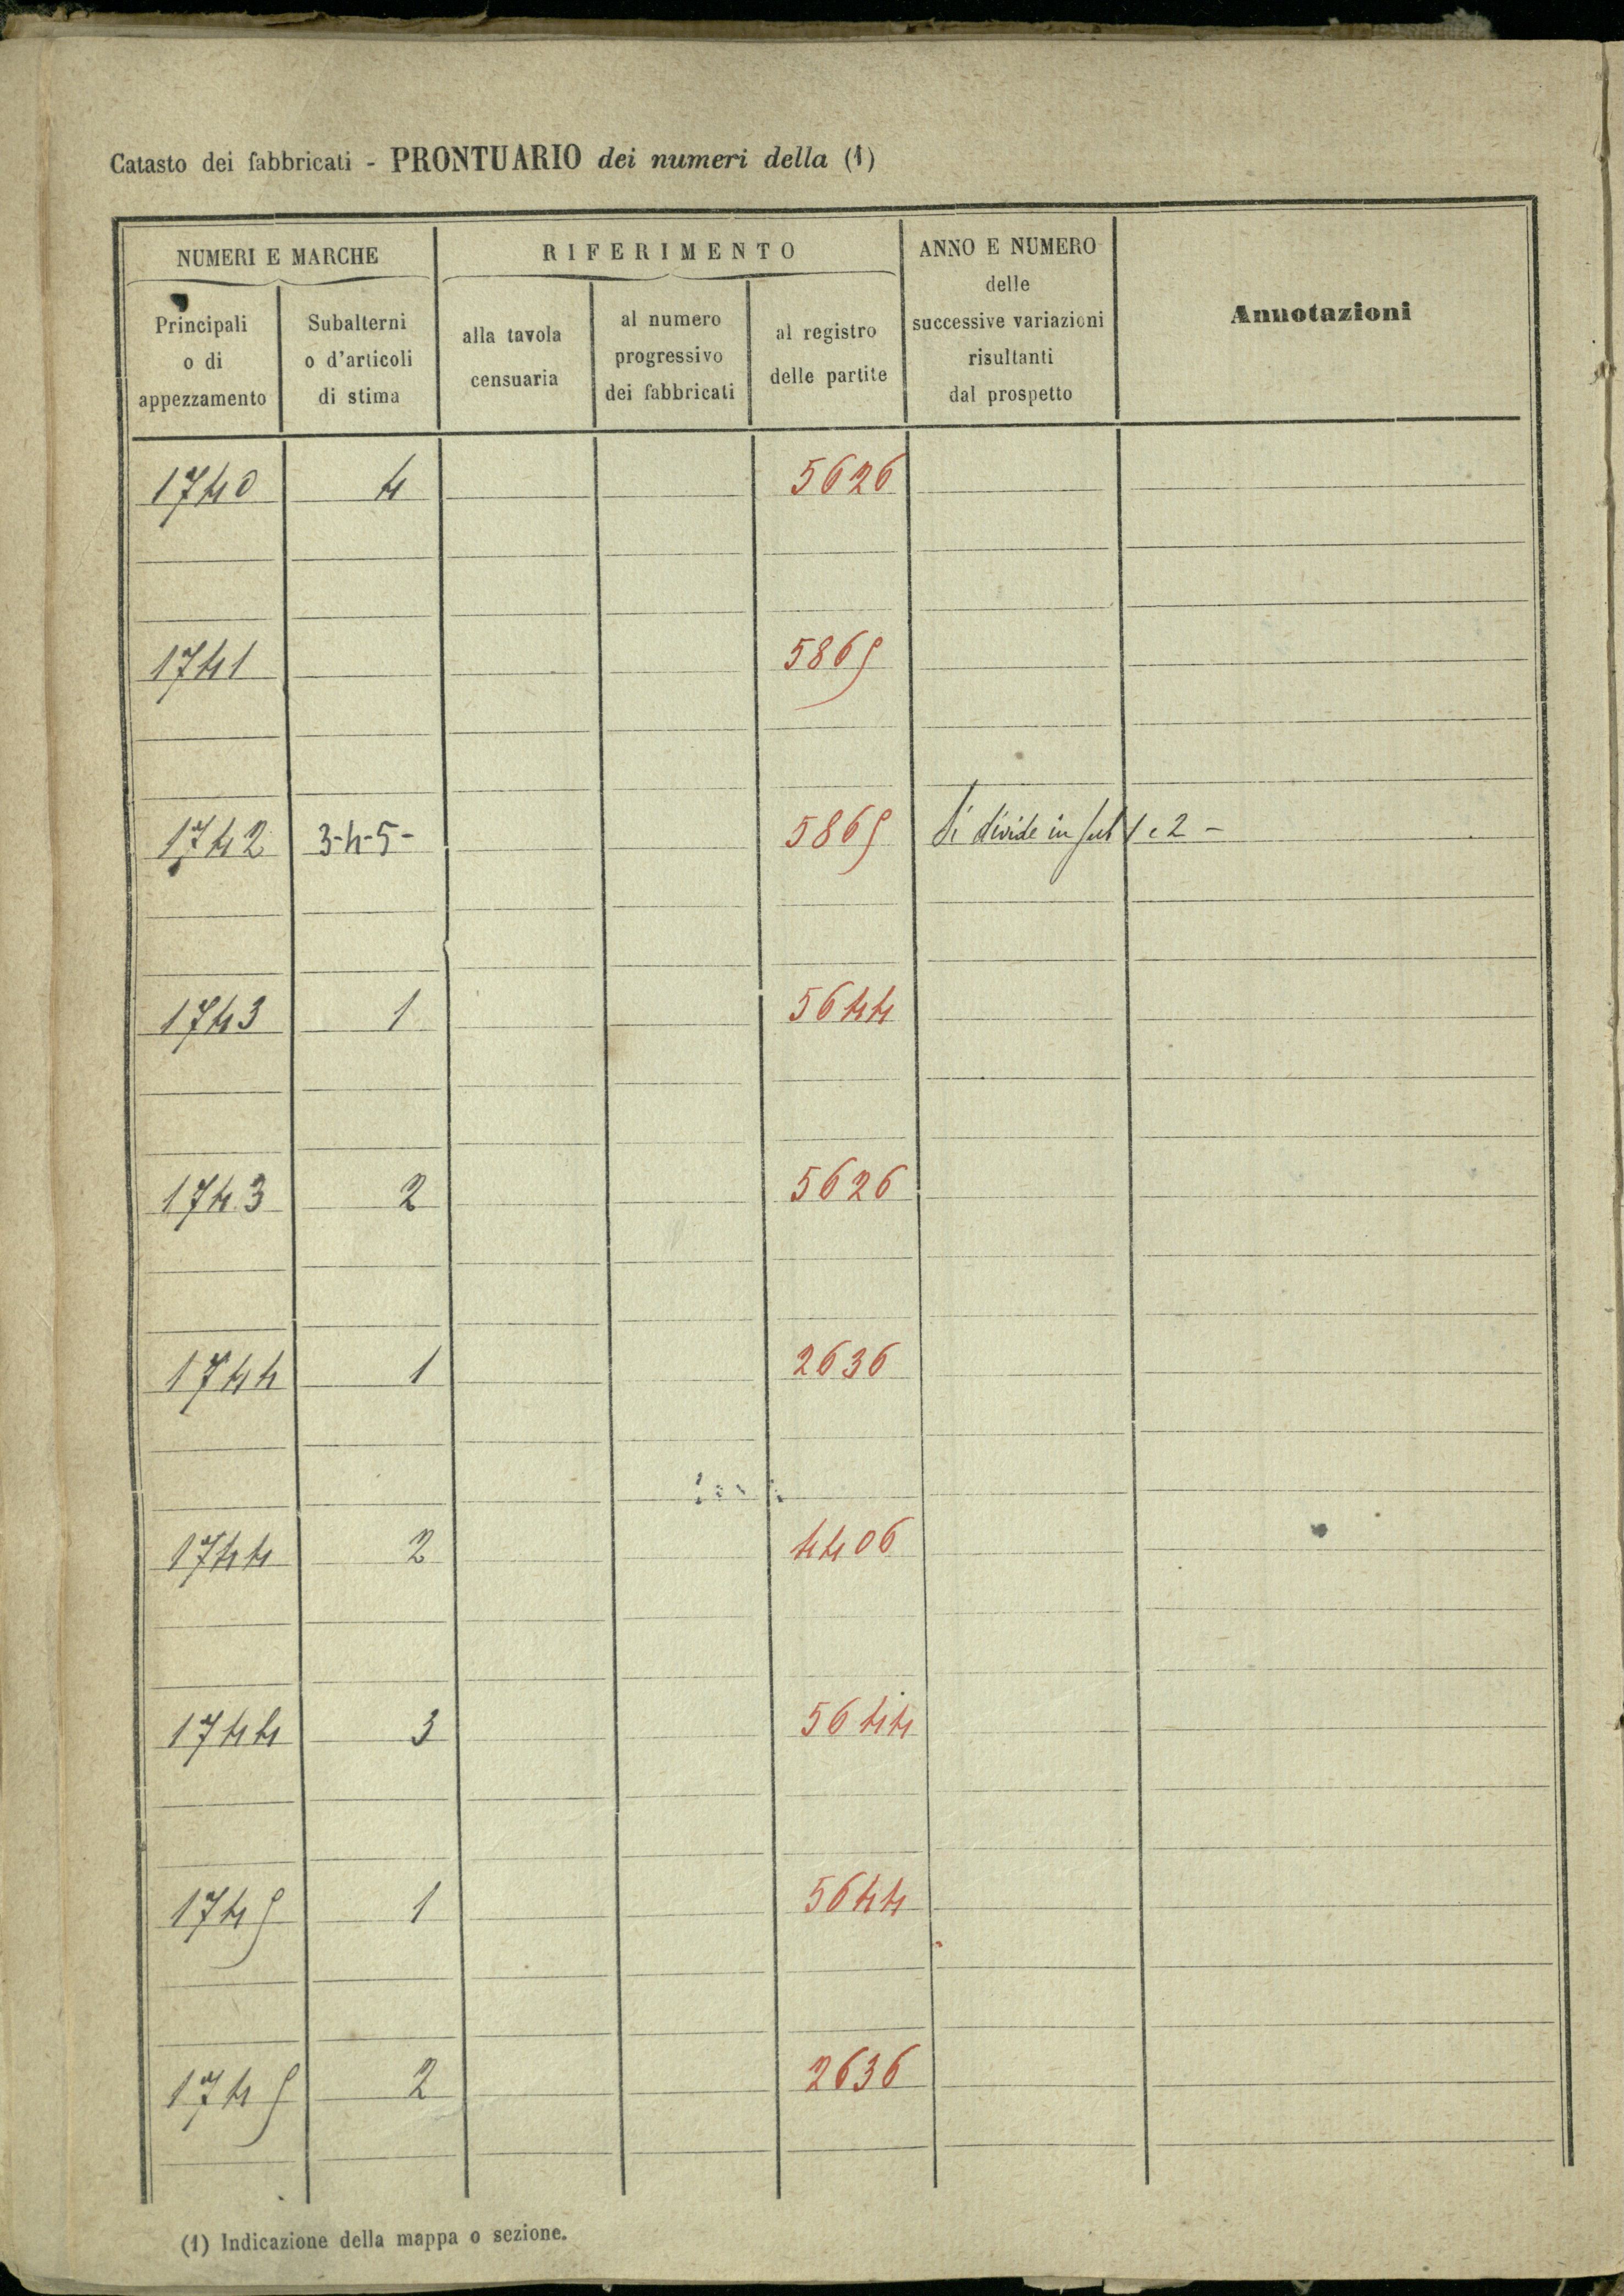 Catasto dei fabbricati - PRONTUARIO dei numeri della (1)
NUMERI E MARCHE
RIFERIMENTO
ANNO E NUMERO
delle
successive variazioni
risultanti
dal prospetto
Annotazioni
Principali
o di
appezzamento
Subalterni
o d'articoli
di stima
alla tavola
censuaria
al numero
progressivo
dei fabbricati
al registro
delle partite
1740 4 5626
1741 5865
1742 3-4-5- 5865 Si divide in sub 1 e 2 -
1743 1 5644
1743 2 5626
1744 1 2636
1744 2 4406
1744 3 5644
1745 1 5644
1745 2 2636
(1) Indicazione della mappa o sezione.